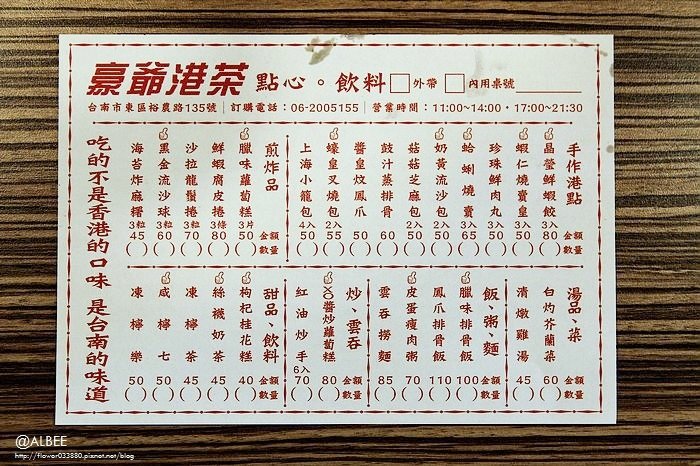 豪爺港茶 點心。飲料 □外帶 □內用桌號
台南市東區裕農路135號 | 訂購電話：06-2005155 | 營業時間：11:00~14:00・17:00~21:30
手作港點
金額
數量
晶瑩鮮蝦餃 3入 80 ( )
蝦仁燒賣皇 3入 50 ( )
珍珠鮮肉丸 3入 50 ( )
蛤蜊燒賣 3入 65 ( )
奶黃流沙包 2入 50 ( )
菇菇芝麻包 2入 50 ( )
豉汁蒸排骨 60 ( )
醬皇炆鳳爪 60 ( )
蠔皇叉燒包 2入 55 ( )
上海小籠包 4入 50 ( )
煎炸品
金額
數量
臘味蘿蔔糕 3片 50 ( )
鮮蝦腐皮捲 3條 80 ( )
沙拉龍鬚捲 3粒 70 ( )
黑金流沙球 3粒 60 ( )
海苔炸麻糬 3粒 45 ( )
湯品、菜
金額
數量
白灼芥蘭菜 60 ( )
清燉雞湯 45 ( )
飯、粥、麵
金額
數量
臘味排骨飯 100 ( )
鳳爪排骨飯 110 ( )
皮蛋瘦肉粥 70 ( )
雲吞撈麵 85 ( )
炒、雲吞
金額
數量
XO醬炒蘿蔔糕 80 ( )
紅油炒手 6入 70 ( )
甜品、飲料
金額
數量
枸杞桂花糕 40 ( )
絲襪奶茶 45 ( )
凍檸茶 45 ( )
咸檸七 50 ( )
凍檸樂 50 ( )
吃的不是香港的口味 是台南的味道
@ALBEE
http://flower033880.pixnet.net/blog